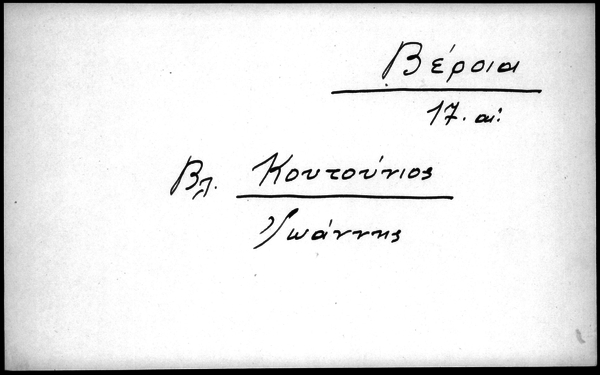 Βέροια
17. αι:
Βλ. Κουτούνιος
Ἰωάννης